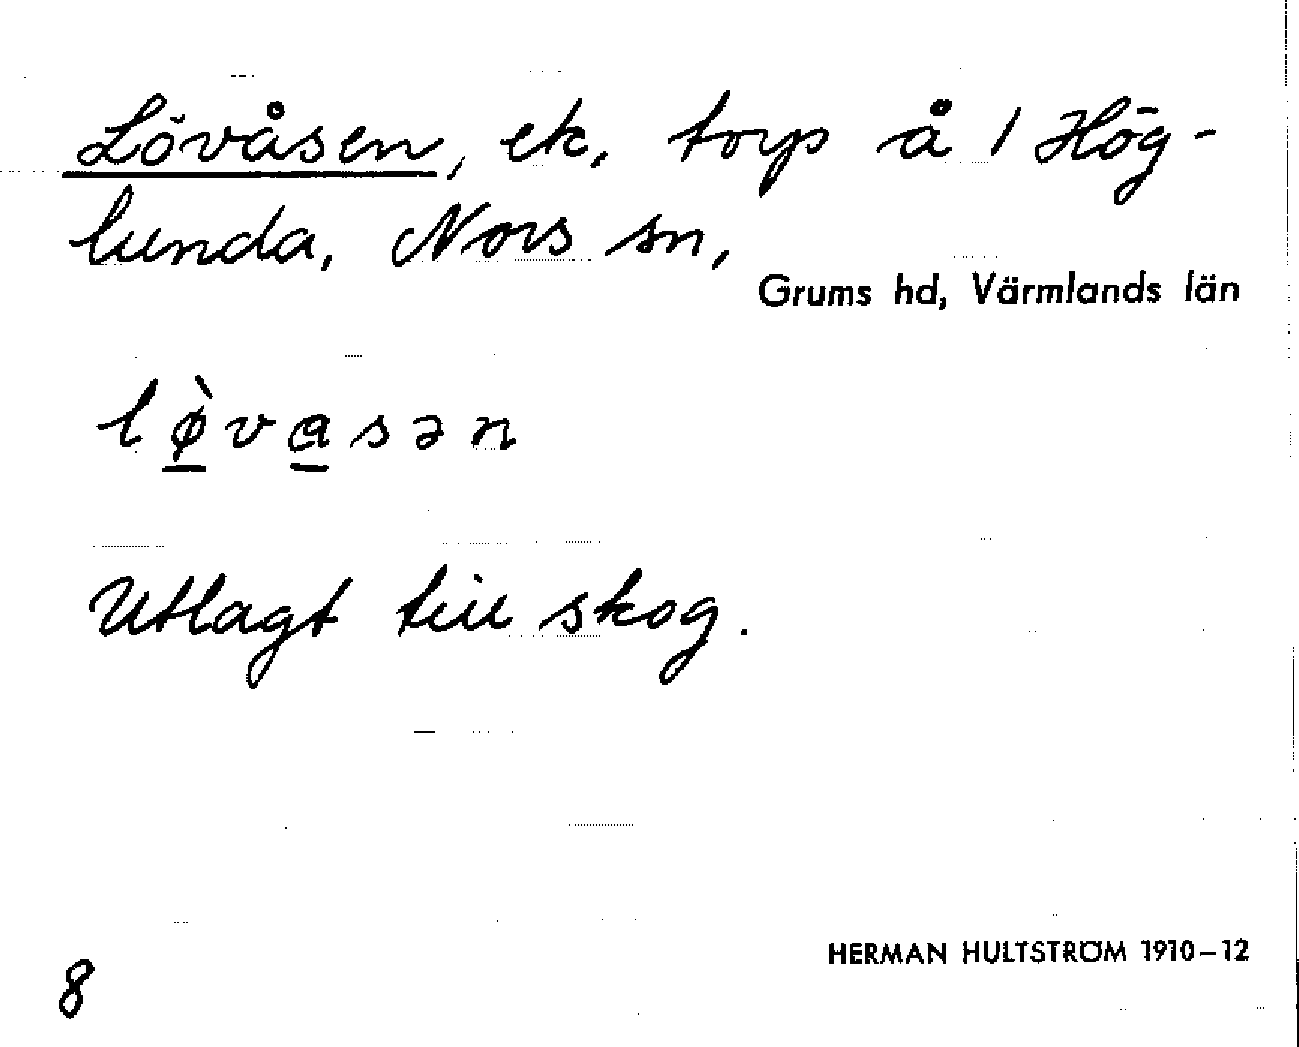 Lövåsen, ek, torp å 1 Hög-
lunda, Nors sn,
Grums hd, Värmlands län
lø̀vasən
Utlagt till skog.
HERMAN HULTSTRÖM 1910–12
8